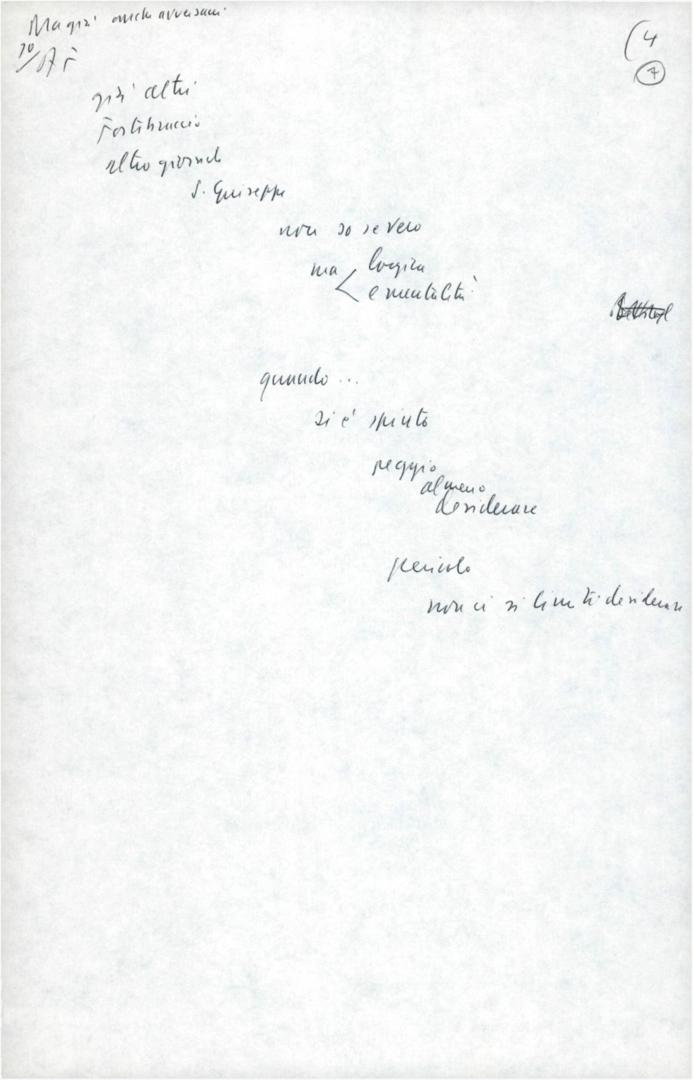 Ma già anche avversari
(4
7
già altri
Fortebraccio
altro giornale
S. Giuseppe
non so se vero
ma < logica
e mentalità
quando ...
si è spinto
peggio
almeno
desiderare
pericolo
non ci si limiti desiderare